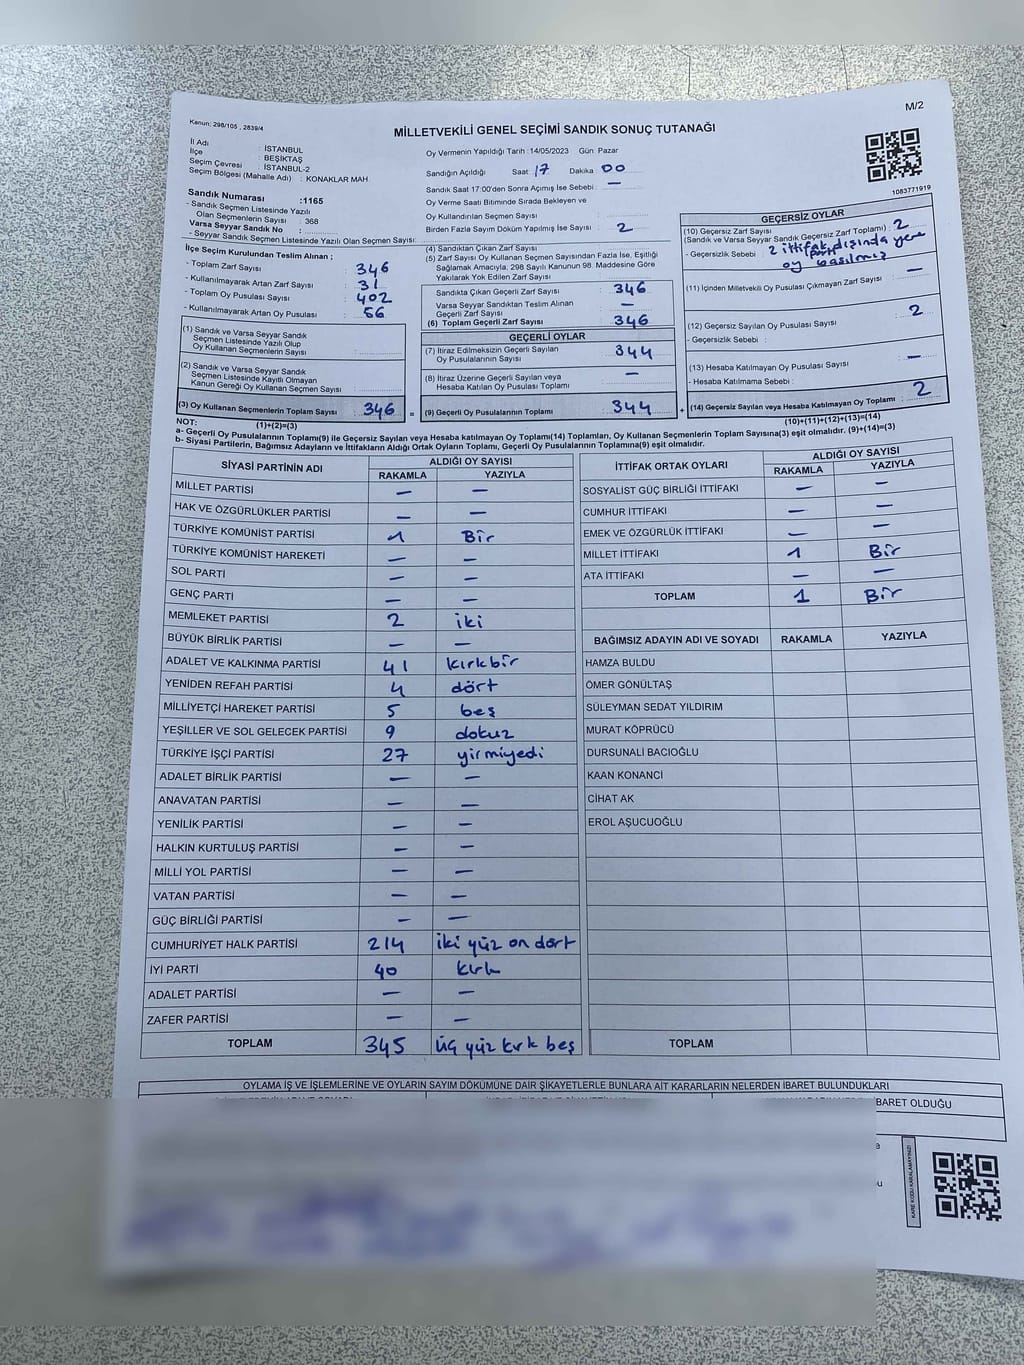 M/2
Kanun: 298/105 , 2839/4
MİLLETVEKİLİ GENEL SEÇİMİ SANDIK SONUÇ TUTANAĞI
İl Adı : İSTANBUL
İlçe : BEŞİKTAŞ
Seçim Çevresi : İSTANBUL-2
Seçim Bölgesi (Mahalle Adı) : KONAKLAR MAH
Sandık Numarası :1165
- Sandık Seçmen Listesinde Yazılı
Olan Seçmenlerin Sayısı : 368
Varsa Seyyar Sandık No :
- Seyyar Sandık Seçmen Listesinde Yazılı Olan Seçmen Sayısı:
Oy Vermenin Yapıldığı Tarih :14/05/2023 Gün Pazar
Sandığın Açıldığı Saat : 17 Dakika : 00
Sandık Saat 17:00'den Sonra Açımış İse Sebebi : —
Oy Verme Saati Bitiminde Sırada Bekleyen ve
Oy Kullandırılan Seçmen Sayısı :
Birden Fazla Sayım Döküm Yapılmış İse Sayısı : 2
1083771919
İlçe Seçim Kurulundan Teslim Alınan ;
- Toplam Zarf Sayısı : 346
- Kullanılmayarak Artan Zarf Sayısı : 31
- Toplam Oy Pusulası Sayısı : 402
- Kullanılmayarak Artan Oy Pusulası : 56
(1) Sandık ve Varsa Seyyar Sandık
Seçmen Listesinde Yazılı Olup
Oy Kullanan Seçmenlerin Sayısı :
(2) Sandık ve Varsa Seyyar Sandık
Seçmen Listesinde Kayıtlı Olmayan
Kanun Gereği Oy Kullanan Seçmen Sayısı :
(3) Oy Kullanan Seçmenlerin Toplam Sayısı : 346 =
(1)+(2)=(3)
(4) Sandıktan Çıkan Zarf Sayısı :
(5) Zarf Sayısı Oy Kullanan Seçmen Sayısından Fazla İse, Eşitliği
Sağlamak Amacıyla, 298 Sayılı Kanunun 98. Maddesine Göre
Yakılarak Yok Edilen Zarf Sayısı :
Sandıkta Çıkan Geçerli Zarf Sayısı : 346
Varsa Seyyar Sandıktan Teslim Alınan
Geçerli Zarf Sayısı : —
(6) Toplam Geçerli Zarf Sayısı : 346
GEÇERLİ OYLAR
(7) İtiraz Edilmeksizin Geçerli Sayılan
Oy Pusulalarının Sayısı : 344
(8) İtiraz Üzerine Geçerli Sayılan veya
Hesaba Katılan Oy Pusulası Toplamı : —
(9) Geçerli Oy Pusulalarının Toplamı : 344 +
GEÇERSİZ OYLAR
(10) Geçersiz Zarf Sayısı
(Sandık ve Varsa Seyyar Sandık Geçersiz Zarf Toplamı) : 2
- Geçersizlik Sebebi : 2 ittifak dışında yere
oy basılmış
(11) İçinden Milletvekili Oy Pusulası Çıkmayan Zarf Sayısı : —
(12) Geçersiz Sayılan Oy Pusulası Sayısı : 2
- Geçersizlik Sebebi :
(13) Hesaba Katılmayan Oy Pusulası Sayısı : —
- Hesaba Katılmama Sebebi :
(14) Geçersiz Sayılan veya Hesaba Katılmayan Oy Toplamı : 2
(10)+(11)+(12)+(13)=(14)
NOT:
a- Geçerli Oy Pusulalarının Toplamı(9) ile Geçersiz Sayılan veya Hesaba katılmayan Oy Toplamı(14) Toplamları, Oy Kullanan Seçmenlerin Toplam Sayısına(3) eşit olmalıdır. (9)+(14)=(3)
b- Siyasi Partilerin, Bağımsız Adayların ve İttifakların Aldığı Ortak Oyların Toplamı, Geçerli Oy Pusulalarının Toplamına(9) eşit olmalıdır.
SİYASİ PARTİNİN ADI ALDIĞI OY SAYISI
RAKAMLA YAZIYLA
MİLLET PARTİSİ — —
HAK VE ÖZGÜRLÜKLER PARTİSİ — —
TÜRKİYE KOMÜNİST PARTİSİ 1 Bir
TÜRKİYE KOMÜNİST HAREKETİ — —
SOL PARTİ — —
GENÇ PARTİ — —
MEMLEKET PARTİSİ 2 iki
BÜYÜK BİRLİK PARTİSİ — —
ADALET VE KALKINMA PARTİSİ 41 kırkbir
YENİDEN REFAH PARTİSİ 4 dört
MİLLİYETÇİ HAREKET PARTİSİ 5 beş
YEŞİLLER VE SOL GELECEK PARTİSİ 9 dokuz
TÜRKİYE İŞÇİ PARTİSİ 27 yirmiyedi
ADALET BİRLİK PARTİSİ — —
ANAVATAN PARTİSİ — —
YENİLİK PARTİSİ — —
HALKIN KURTULUŞ PARTİSİ — —
MİLLİ YOL PARTİSİ — —
VATAN PARTİSİ — —
GÜÇ BİRLİĞİ PARTİSİ — —
CUMHURİYET HALK PARTİSİ 214 iki yüz on dört
İYİ PARTİ 40 kırk
ADALET PARTİSİ — —
ZAFER PARTİSİ — —
TOPLAM 345 üç yüz kırk beş
İTTİFAK ORTAK OYLARI ALDIĞI OY SAYISI
RAKAMLA YAZIYLA
SOSYALİST GÜÇ BİRLİĞİ İTTİFAKI — —
CUMHUR İTTİFAKI — —
EMEK VE ÖZGÜRLÜK İTTİFAKI — —
MİLLET İTTİFAKI 1 Bir
ATA İTTİFAKI — —
TOPLAM 1 Bir
BAĞIMSIZ ADAYIN ADI VE SOYADI RAKAMLA YAZIYLA
HAMZA BULDU
ÖMER GÖNÜLTAŞ
SÜLEYMAN SEDAT YILDIRIM
MURAT KÖPRÜCÜ
DURSUNALİ BACIOĞLU
KAAN KONANCİ
CİHAT AK
EROL AŞUCUOĞLU
TOPLAM
OYLAMA İŞ VE İŞLEMLERİNE VE OYLARIN SAYIM DÖKÜMÜNE DAİR ŞİKAYETLERLE BUNLARA AİT KARARLARIN NELERDEN İBARET BULUNDUKLARI
BARET OLDUĞU
KARE KODU KARALAMAYINIZ!